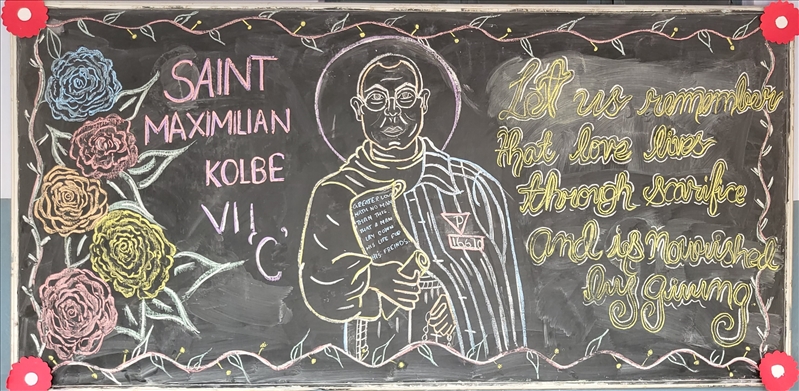 SAINT
MAXIMILIAN
KOLBE
VI 'C'
GREATER LOVE
HATH NO MAN
THAN THIS
THAT A MAN
LAY DOWN
HIS LIFE FOR
HIS FRIENDS.
P
16670
Let us remember
that love lives
through scarifice
And is Nourished
by giving